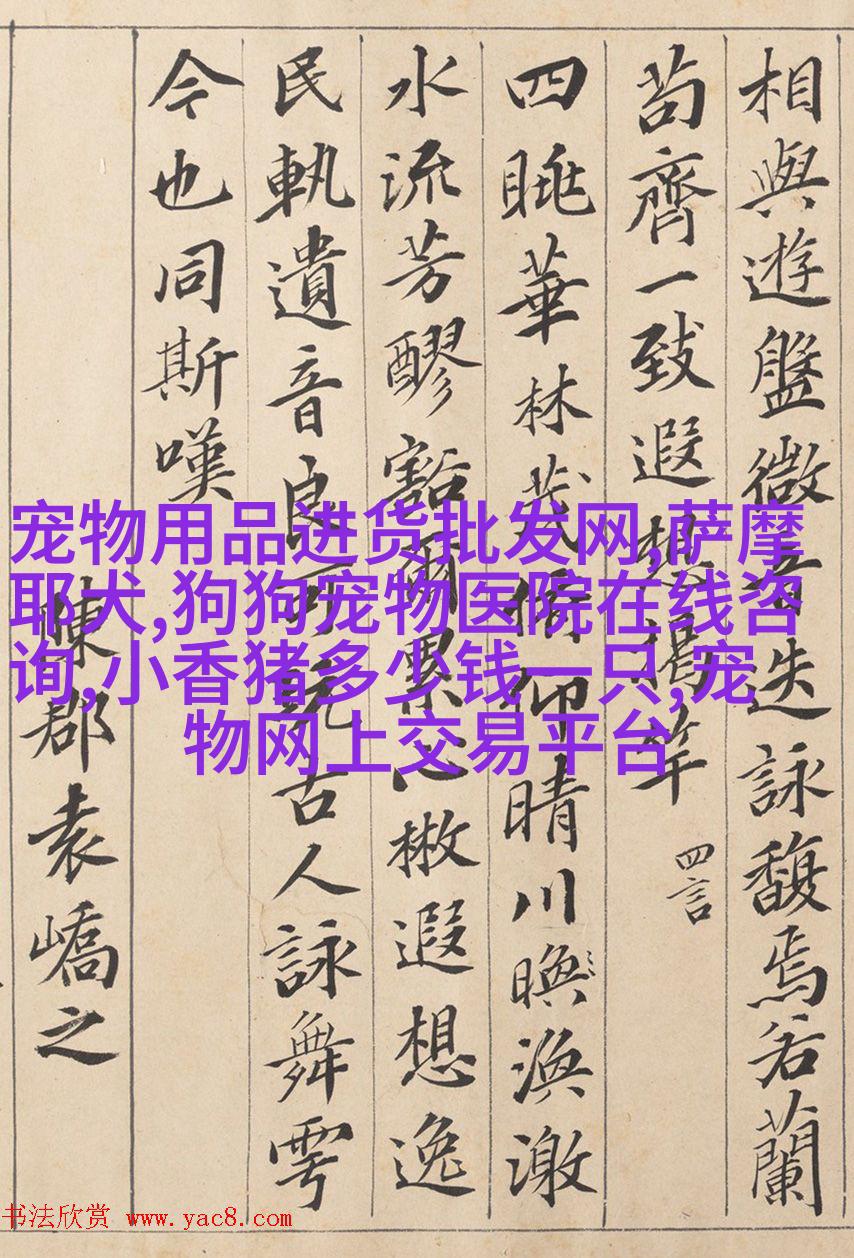 相與遊盤微音迭詠馥焉若蘭
苟齊一致遐想揭竿 四言
四眺華林茂俯仰晴川暎渙激
水流芳醪豁爾累心散遐想逸
民軌遺音良可翫古人詠舞雩
今也同斯嘆
陳郡袁嶠之
宠物用品进货批发网,萨摩
耶犬,狗狗宠物医院在线咨
询,小香猪多少钱一只,宠
物网上交易平台
书法欣赏 www.yac8.com